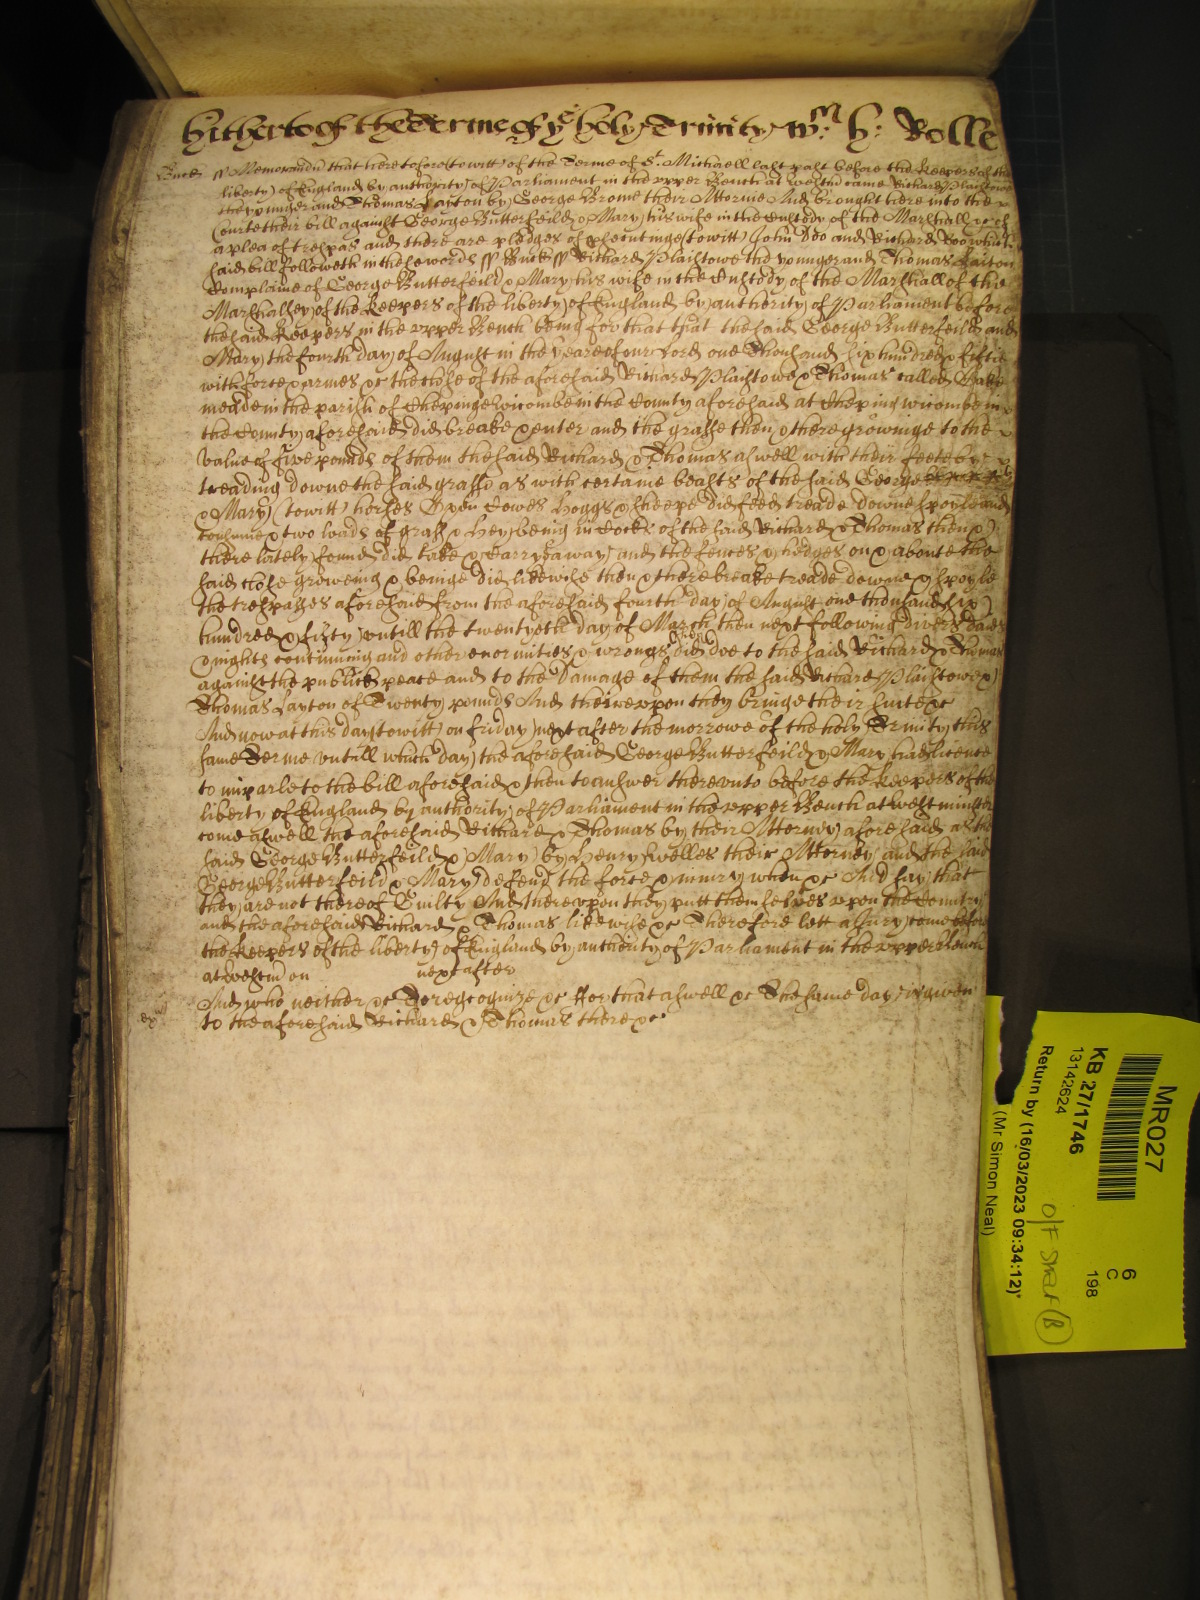 hitherto of the Terme of ye holy Trinity wm: h: Rolle
Bucks ss Memorandu that heretofore (towitt) of the Terme of St. Michaell last past before the Keepers of the
liberty of England by authority of Parliament in the vpper Bench at westm came Richard Plaistowe
the younger and Thomas Layton by George Brome their Attorney And brought here into the
Courte their bill against George Butterfeild & Mary his wife in the Custody of the Marshall &c of
a plea of trespas and there are pledges of prosecutinge (towitt) John Doo and Richard Roo which
said bill followeth in these words ss Bucks ss Richard Plaistowe the younger and Thomas Laiton
Complaine of George Butterfeild & Mary his wife in the Custody of the Marshall of the
Marshalsey of the Keepers of the liberty of England by authority of Parliament before
the said Keepers in the vpper Bench being for that that the said George Butterfeild and
Mary the fourth day of August in the yeare of our Lord one Thousand six hundred & fiftie
with force & armes &c the close of the aforesaid Richard Plaistowe & Thomas called
meade in the parish of Chepinge wicombe in the County aforesaid at Cheping wicombe in
the County aforesaid did breake & enter and the grasse then & there growinge to the
value of five pounds of them the said Richard & Thomas aswell with their feete by
treading downe the said grasse as with certaine beasts of the said George
& Mary (towitt) horses Oxen Cowes hoggs & sheepe did feed treade downe spoyle and
consume & two loads of grasse & hey being in Cocks of the said Richard & Thomas then &
there lately found did take & Carry away and the fences & hedges on & aboute the
said close groweing & beinge did likewise then & there breake treade downe & spoyle
the trespasses aforesaid from the aforesaid fourth day of August one thousand six
hundred & fifty vntill the twentyeth day of March then next following divers daies
& nights continuing and other enormities & wrongs then did doe to the said Richard & Thomas
against the publick peace and to the damage of them the said Richard Plaistowe &
Thomas Layton of Twenty pounds And therevpon they bringe their suite &c
And now at this day (towitt) on friday next after the morrowe of the holy Trinity this
same Terme vntill which day the aforesaid George Butterfeild & Mary had licence
to imparle to the bill aforesaid & then to answer therevnto before the Keepers of the
liberty of England by authority of Parliament in the vpper Bench at westminster
come aswell the aforesaid Richard & Thomas by their Attorney aforesaid as the
said George Butterfeild & Mary by Henry Swelles their Attorney and the said
George Butterfeild & Mary defend the force & iniury when &c And say that
they are not thereof Guilty And therevpon they putt themselves vpon the Country
and the aforesaid Richard & Thomas likewise &c Therefore lett a Jury come before
the Keepers of the liberty of England by authority of Parliament in the vpper Bench
at westm on next after
And who neither &c To recognize &c ffor that aswell &c The same day is given
to the aforesaid Richard & Thomas there &c
MR027
KB 27/1746
13142624
Return by (16/03/2023 09:34:12)*
(Mr Simon Neal)
6
C
198